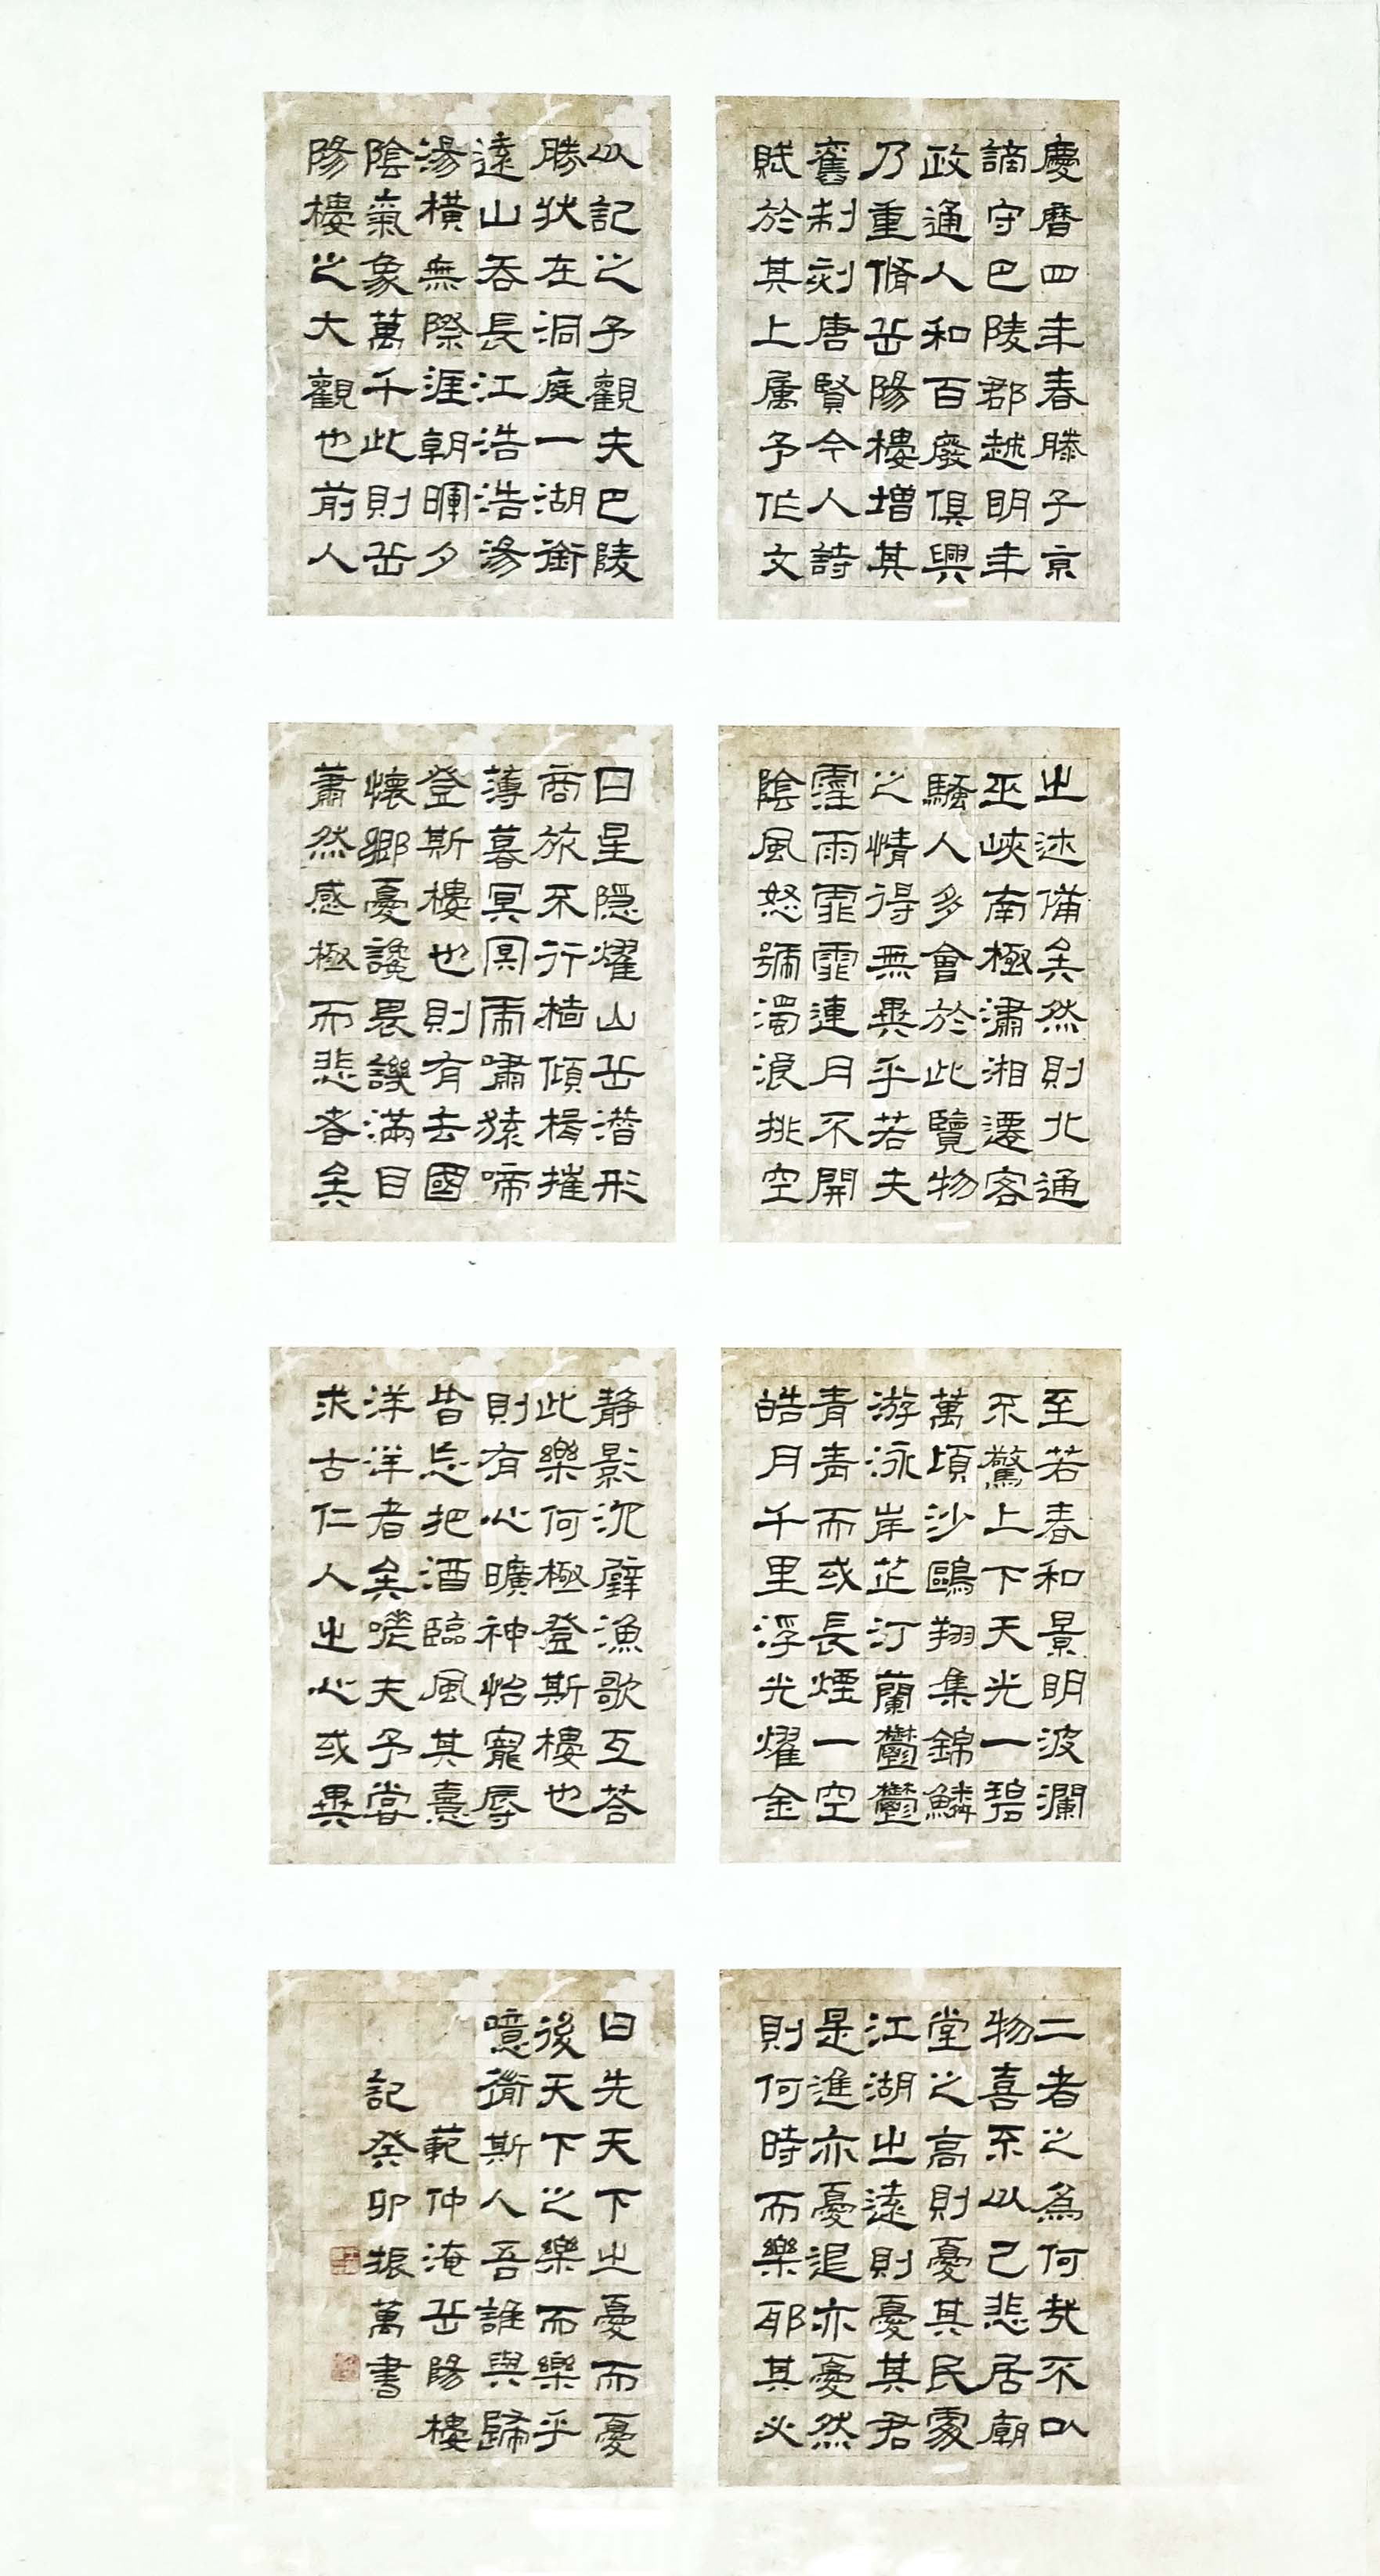 慶曆四年春滕子京
謫守巴陵郡越明年
政通人和百廢俱興
乃重脩岳陽樓增其
舊制刻唐賢今人詩
賦於其上属予作文
以記之予觀夫巴陵
勝狀在洞庭一湖銜
遠山吞長江浩浩湯
湯橫無際涯朝暉夕
陰氣象萬千此則岳
陽樓之大觀也前人
之述備矣然則北通
巫峽南極瀟湘遷客
騷人多會於此覽物
之情得無異乎若夫
霪雨霏霏連月不開
陰風怒號濁浪排空
日星隱燿山岳潛形
商旅不行檣傾楫摧
薄暮冥冥虎嘯猿啼
登斯樓也則有去國
懷鄉憂讒畏譏滿目
蕭然感極而悲者矣
至若春和景明波瀾
不驚上下天光一碧
萬頃沙鷗翔集錦鱗
游泳岸芷汀蘭鬱鬱
青青而或長煙一空
皓月千里浮光燿金
靜影沉璧漁歌互荅
此樂何極登斯樓也
則有心曠神怡寵辱
皆忘把酒臨風其憙
洋洋者矣嗟夫予嘗
求古仁人之心或異
二者之為何哉不以
物喜不以己悲居廟
堂之高則憂其民處
江湖之遠則憂其君
是進亦憂退亦憂然
則何時而樂耶其必
曰先天下之憂而憂
後天下之樂而樂乎
噫微斯人吾誰與歸
範仲淹岳陽樓
記癸卯振萬書